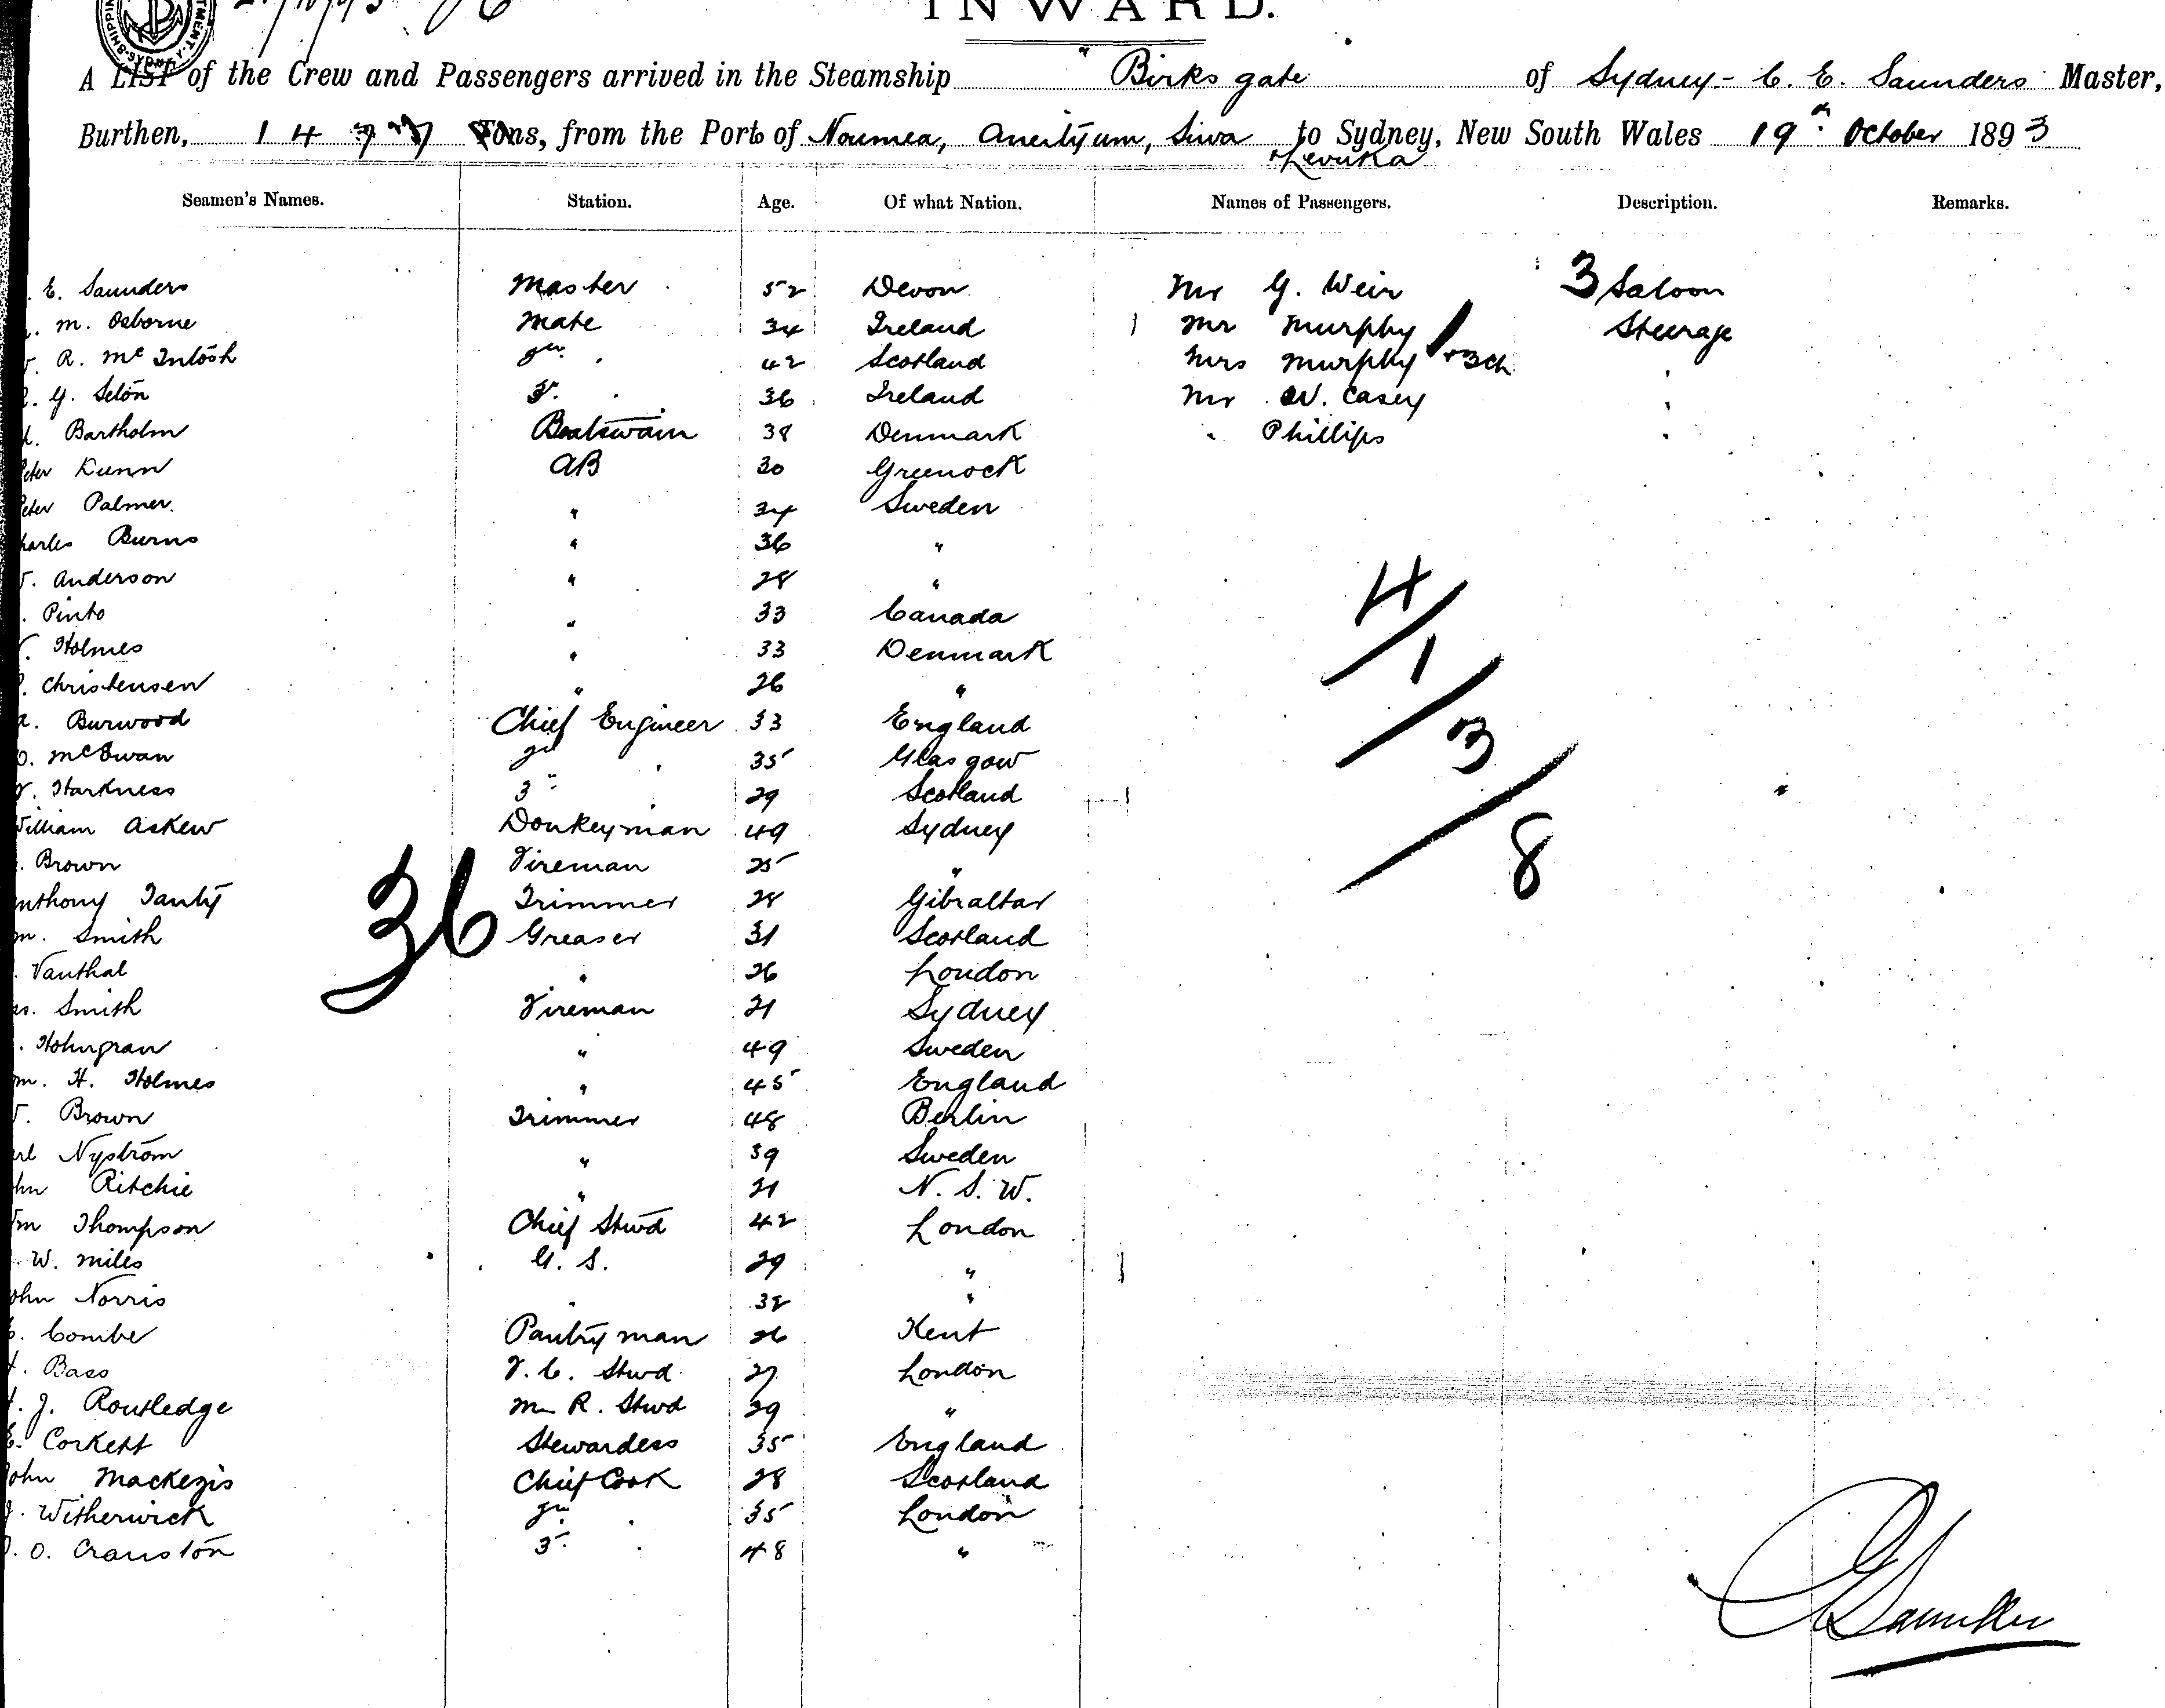 INWARD.
A LIST of the Crew and Passengers arrived in the Steamship Birksgate of Sydney - C. E. Saunders Master,
Burthen, 14 Tons, from the Port of Noumea, Aneityum, Suva to Sydney, New South Wales 19th October 1893
+ Levuka
Seamen's Names. Station. Age. Of what Nation. Names of Passengers. Description. Remarks.
E. Saunders Master 52 Devon Mr G. Weir 3 Saloon
M. Osborne Mate 34 Ireland 1 Mr Murphy Steerage
R. McIntosh 2nd " 42 Scotland Mrs Murphy + 3 ch "
G. Seton 3rd " 36 Ireland Mr W. Casey "
Bartholm Boatswain 38 Denmark " Phillips "
Peter Dunn AB 30 Greenock
Peter Palmer. " 34 Sweden
Charles Burns " 36 "
Anderson " 28 "
Pinto " 33 Canada
Holmes " 33 Denmark
Christensen " 26 "
Burwood Chief Engineer 33 England
McEwan 2nd " 35 Glasgow
Harkness 3rd " 29 Scotland
William Askew Donkeyman 49 Sydney
Brown Fireman 25 "
Anthony Trimmer 28 Gibraltar
Smith Greaser 31 Scotland
Vanthal " 26 London
Smith Fireman 21 Sydney
Holmgran " 49 Sweden
H. Holmes " 45 England
Brown Trimmer 48 Berlin
Nyström " 39 Sweden
John Ritchie " 21 N. S. W.
Wm Thompson Chief Stwd 42 London
W. Miles G. S. 29 "
John Norris " 32 "
Combe Pantryman 26 Kent
Bass F. C. Stwd 27 London
J. Routledge M R. Stwd 29 "
E. Corkett Stewardess 35 England
John Mackezis Chief Cook 28 Scotland
Witherwick 2nd " 35 London
O. Cranston 3rd " 48 "
36
4/1/3/8
C E Saunders